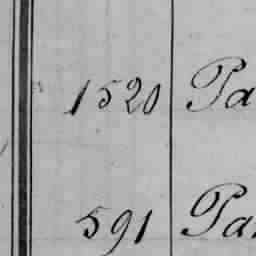 1520 Pa
591 Pa